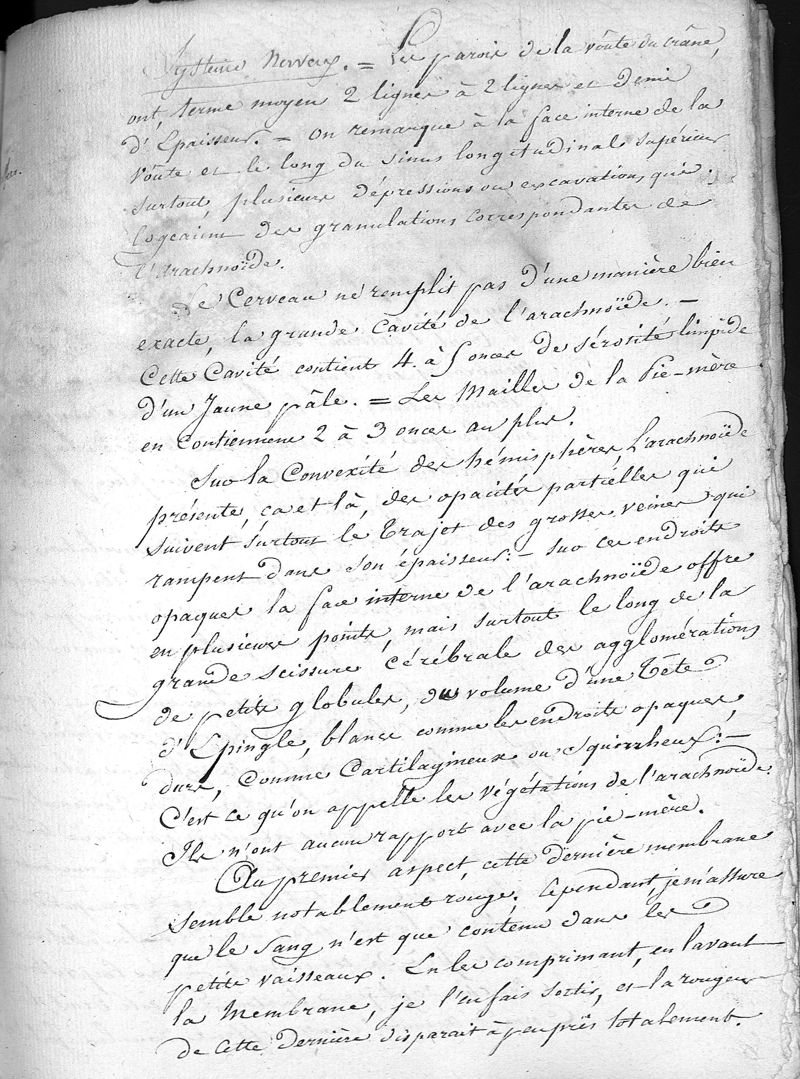 Système Nerveux. = Les parois de la voûte du crâne,
ont, terme moyen 2 lignes à 2 lignes et demie
d'Epaisseur. — On remarque à la face interne de la
voûte et le long du sinus longitudinal supérieur
surtout, plusieurs dépressions ou excavations, qui
logeaient des granulations correspondantes de
l'arachnoïde.
Le Cerveau ne remplit pas d'une manière bien
exacte, la grande cavité de l'arachnoïde. —
Cette Cavité contient 4 à 5 onces de sérosité limpide
d'un Jaune pâle. = Les Mailles de la Pie-mère
en contiennent 2 à 3 onces au plus.
Sur la Convexité des hémisphères, L'arachnoïde
présente, ça et là, des opacités partielles qui
suivent surtout le trajet des grosses veines qui
rampent dans son épaisseur: — sur ces endroits
opaques la face interne de l'arachnoïde offre
en plusieurs points, mais surtout le long de la
grande scissure Cérébrale des agglomérations
de petits globules, du volume d'une tête
d'Epingle, blancs comme les endroits opaques,
durs, comme Cartilagineux ou squirrheux: —
C'est ce qu'on appelle les végétations de l'arachnoïde.
Ils n'ont aucun rapport avec la pie-mère.
Au premier aspect, cette dernière membrane
semble notablement rouge. Cependant, je m'assure
que le sang n'est que contenu dans les
petits vaisseaux. En les comprimant, en lavant
la Membrane, je l'en fais sortir, et la rougeur
de cette dernière disparait à peu près totalement.